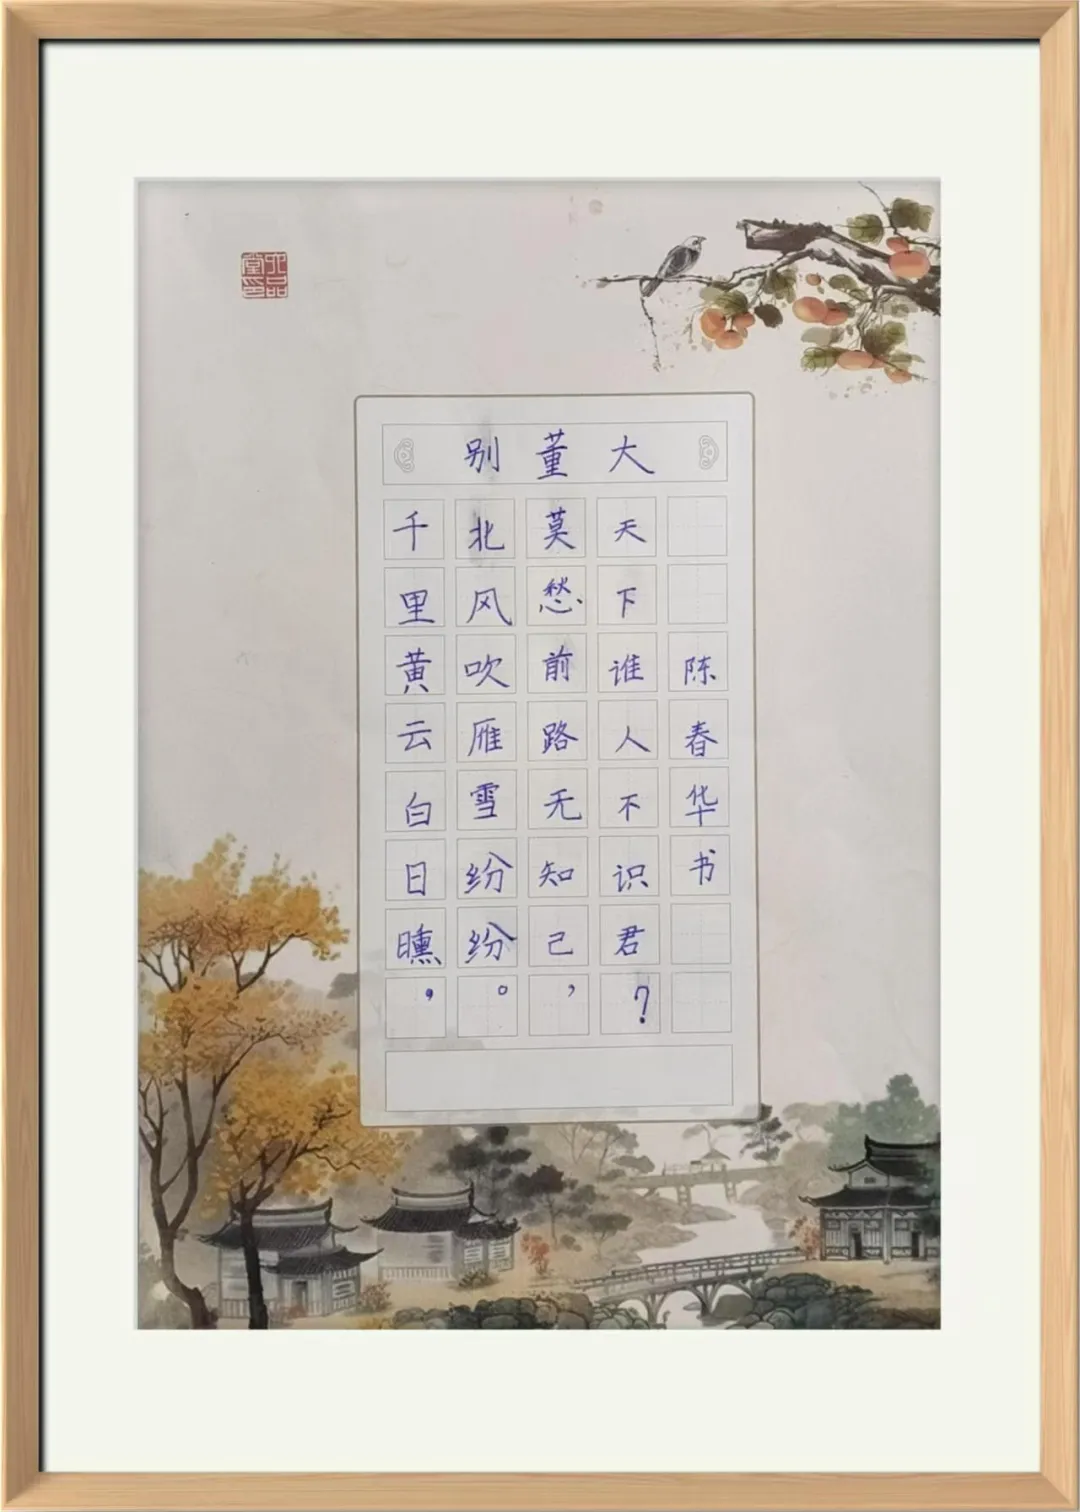 六品
堂印
别董大
千里黄云白日曛，
北风吹雁雪纷纷。
莫愁前路无知己，
天下谁人不识君？
陈春华书